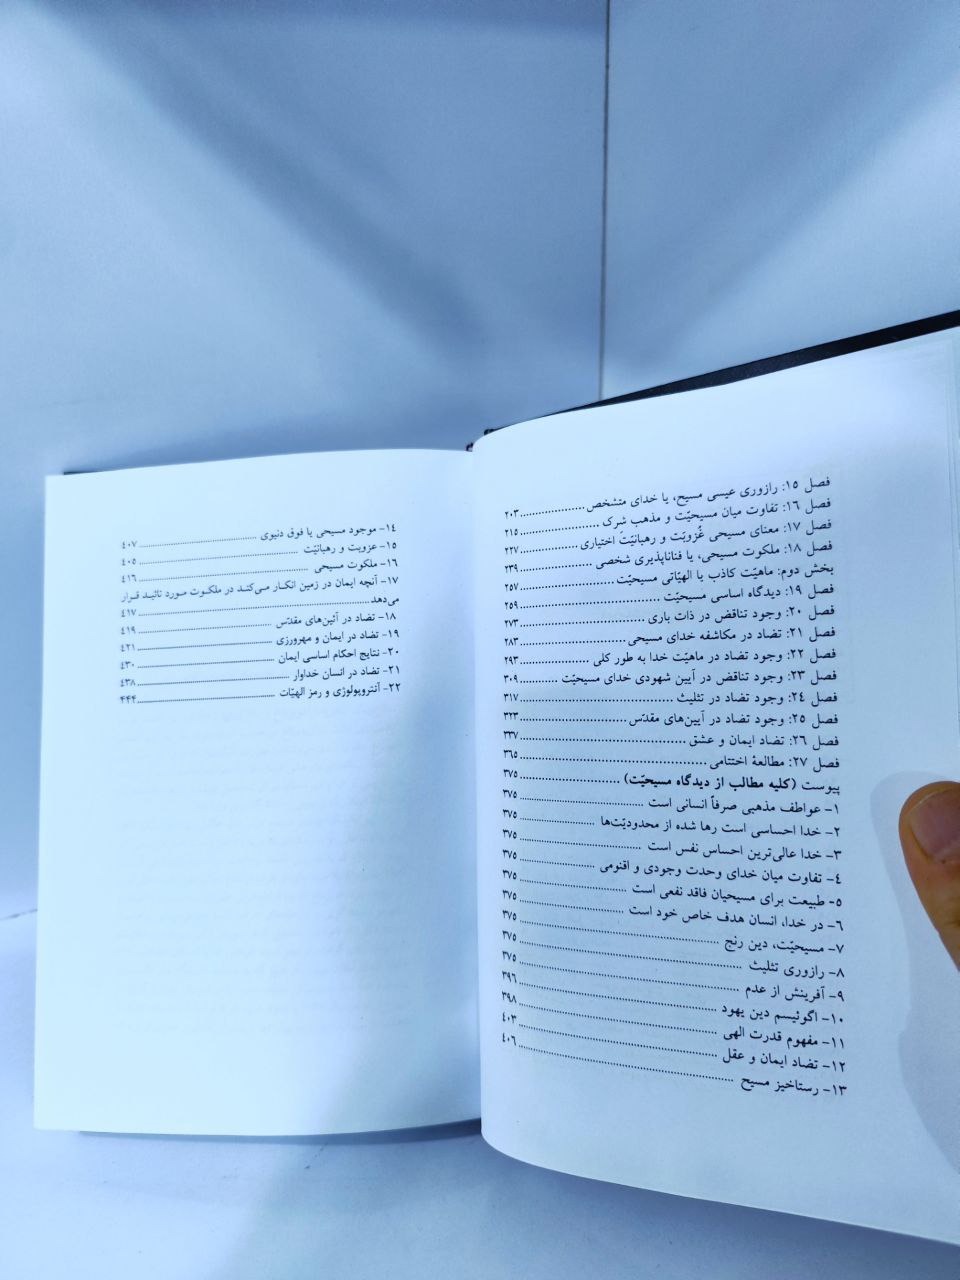 فصل ۱۵: رازوری عیسی مسیح، یا خدای متشخص ........ ۲۰۳
فصل ۱۶: تفاوت میان مسیحیّت و مذهب شرک ........ ۲۱۵
فصل ۱۷: معنای مسیحی عُزوبَت و رهبانیّت اختیاری ........ ۲۲۷
فصل ۱۸: ملکوت مسیحی، یا فناناپذیری شخصی ........ ۲۳۹
بخش دوم: ماهیّت کاذب یا الهیّاتی مسیحیّت ........ ۲۵۷
فصل ۱۹: دیدگاه اساسی مسیحیّت ........ ۲۵۹
فصل ۲۰: وجود تناقض در ذات باری ........ ۲۷۳
فصل ۲۱: تضاد در مکاشفه خدای مسیحی ........ ۲۸۳
فصل ۲۲: وجود تضاد در ماهیّت خدا به طور کلی ........ ۲۹۳
فصل ۲۳: وجود تناقض در آیین شهودی خدای مسیحیّت ........ ۳۰۹
فصل ۲۴: وجود تضاد در تثلیث ........ ۳۱۷
فصل ۲۵: وجود تضاد در آیین‌های مقدّس ........ ۳۲۳
فصل ۲۶: تضاد ایمان و عشق ........ ۳۳۷
فصل ۲۷: مطالعهٔ اختتامی ........ ۳۶۵
پیوست (کلیه مطالب از دیدگاه مسیحیّت) ........ ۳۷۵
۱- عواطف مذهبی صرفاً انسانی است ........ ۳۷۵
۲- خدا احساسی است رها شده از محدودیّت‌ها ........ ۳۷۵
۳- خدا عالی‌ترین احساس نفس است ........ ۳۷۵
۴- تفاوت میان خدای وحدت وجودی و اقنومی ........ ۳۷۵
۵- طبیعت برای مسیحیان فاقد نفعی است ........ ۳۷۵
۶- در خدا، انسان هدف خاص خود است ........ ۳۷۵
۷- مسیحیّت، دین رنج ........ ۳۷۵
۸- رازوری تثلیث ........ ۳۷۵
۹- آفرینش از عدم ........ ۳۹۶
۱۰- اگوئیسم دین یهود ........ ۳۹۸
۱۱- مفهوم قدرت الهی ........ ۴۰۳
۱۲- تضاد ایمان و عقل ........ ۴۰۶
۱۳- رستاخیز مسیح ........
۱۴- موجود مسیحی یا فوق دنیوی ........ ۴۰۷
۱۵- عزوبت و رهبانیّت ........ ۴۰۵
۱۶- ملکوت مسیحی ........ ۴۱۶
۱۷- آنچه ایمان در زمین انکار می‌کند در ملکوت مورد تائید قرار
می‌دهد ........ ۴۱۷
۱۸- تضاد در آئین‌های مقدّس ........ ۴۱۹
۱۹- تضاد در ایمان و مهرورزی ........ ۴۲۱
۲۰- نتایج احکام اساسی ایمان ........ ۴۳۰
۲۱- تضاد در انسان خداوار ........ ۴۳۸
۲۲- آنتروپولوژی و رمز الهیّات ........ ۴۴۴